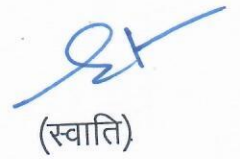 (स्वाति)